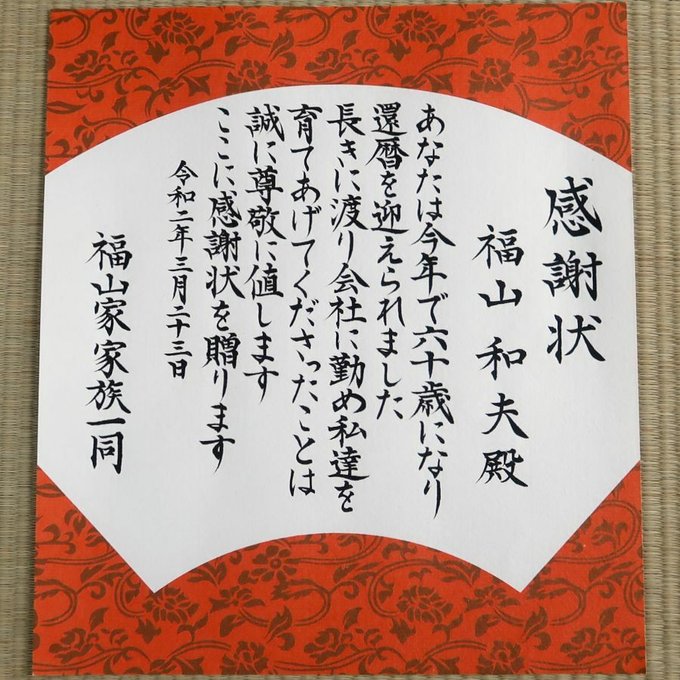 感謝状
福山和夫殿
あなたは今年で六十歳になり
還暦を迎えられました
長きに渡り会社に勤め私達を
育てあげてくださったことは
誠に尊敬に値します
ここに感謝状を贈ります
令和二年三月二十三日
福山家家族一同